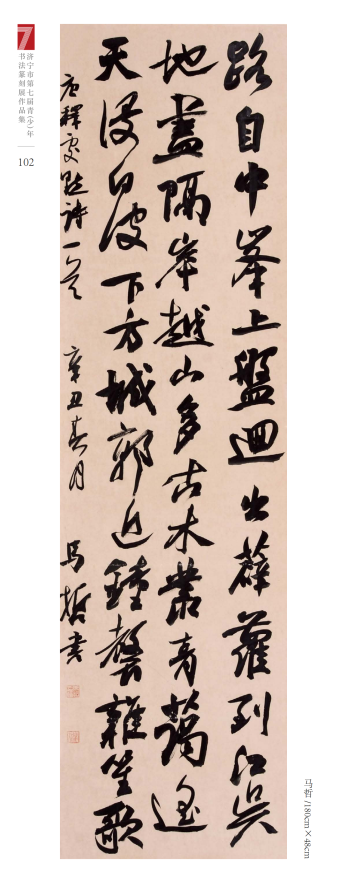 7
济宁市第七届青(少)年
书法篆刻展作品集
102
路自中峯上盤迴出薜蘿到江吳
地盡隔岸越山多古木叢青靄遙
天浸白波下方城郭近鐘磬雜笙歌
唐釋處默詩一首 辛丑春月 馬哲書
马哲 /180cm×48cm